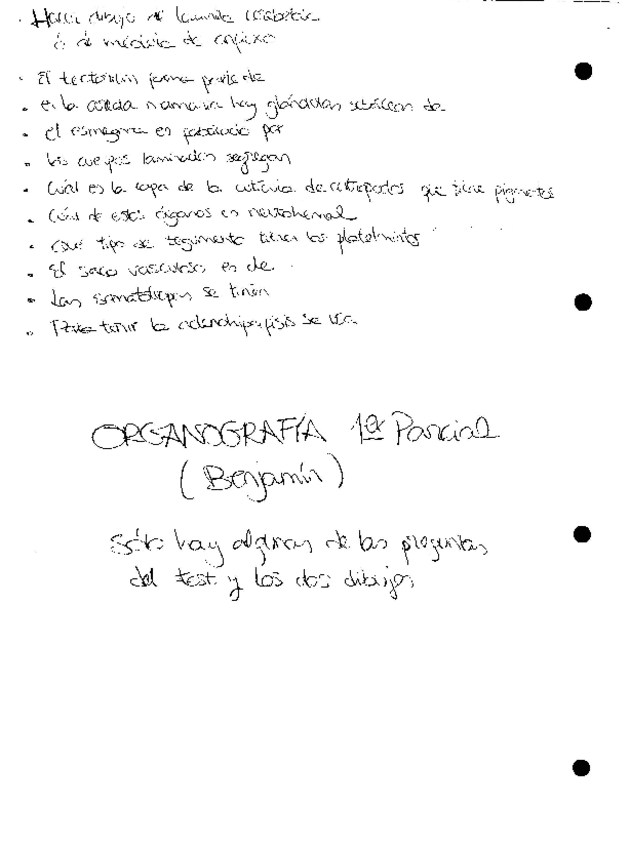 · Hacer dibujo de lamina
ó de médula de
· El tectorium forma parte de
· en la axila humana hay glándulas sebáceas de
· el esmegma es fabricado por
· los cuerpos laminados segregan
· Cuál es la capa de la cutícula de artrópodos que tiene pigmentos
· Cuál de estos órganos es neurohemal
· Qué tipo de tegumento tienen los platelmintos
· El saco vasculoso es de
· Las somatotropas se tiñen
· Para teñir la adenohipófisis se usa
ORGANOGRAFÍA 1er Parcial
(Benjamín)
Sólo hay algunas de las preguntas
del test y los dos dibujos